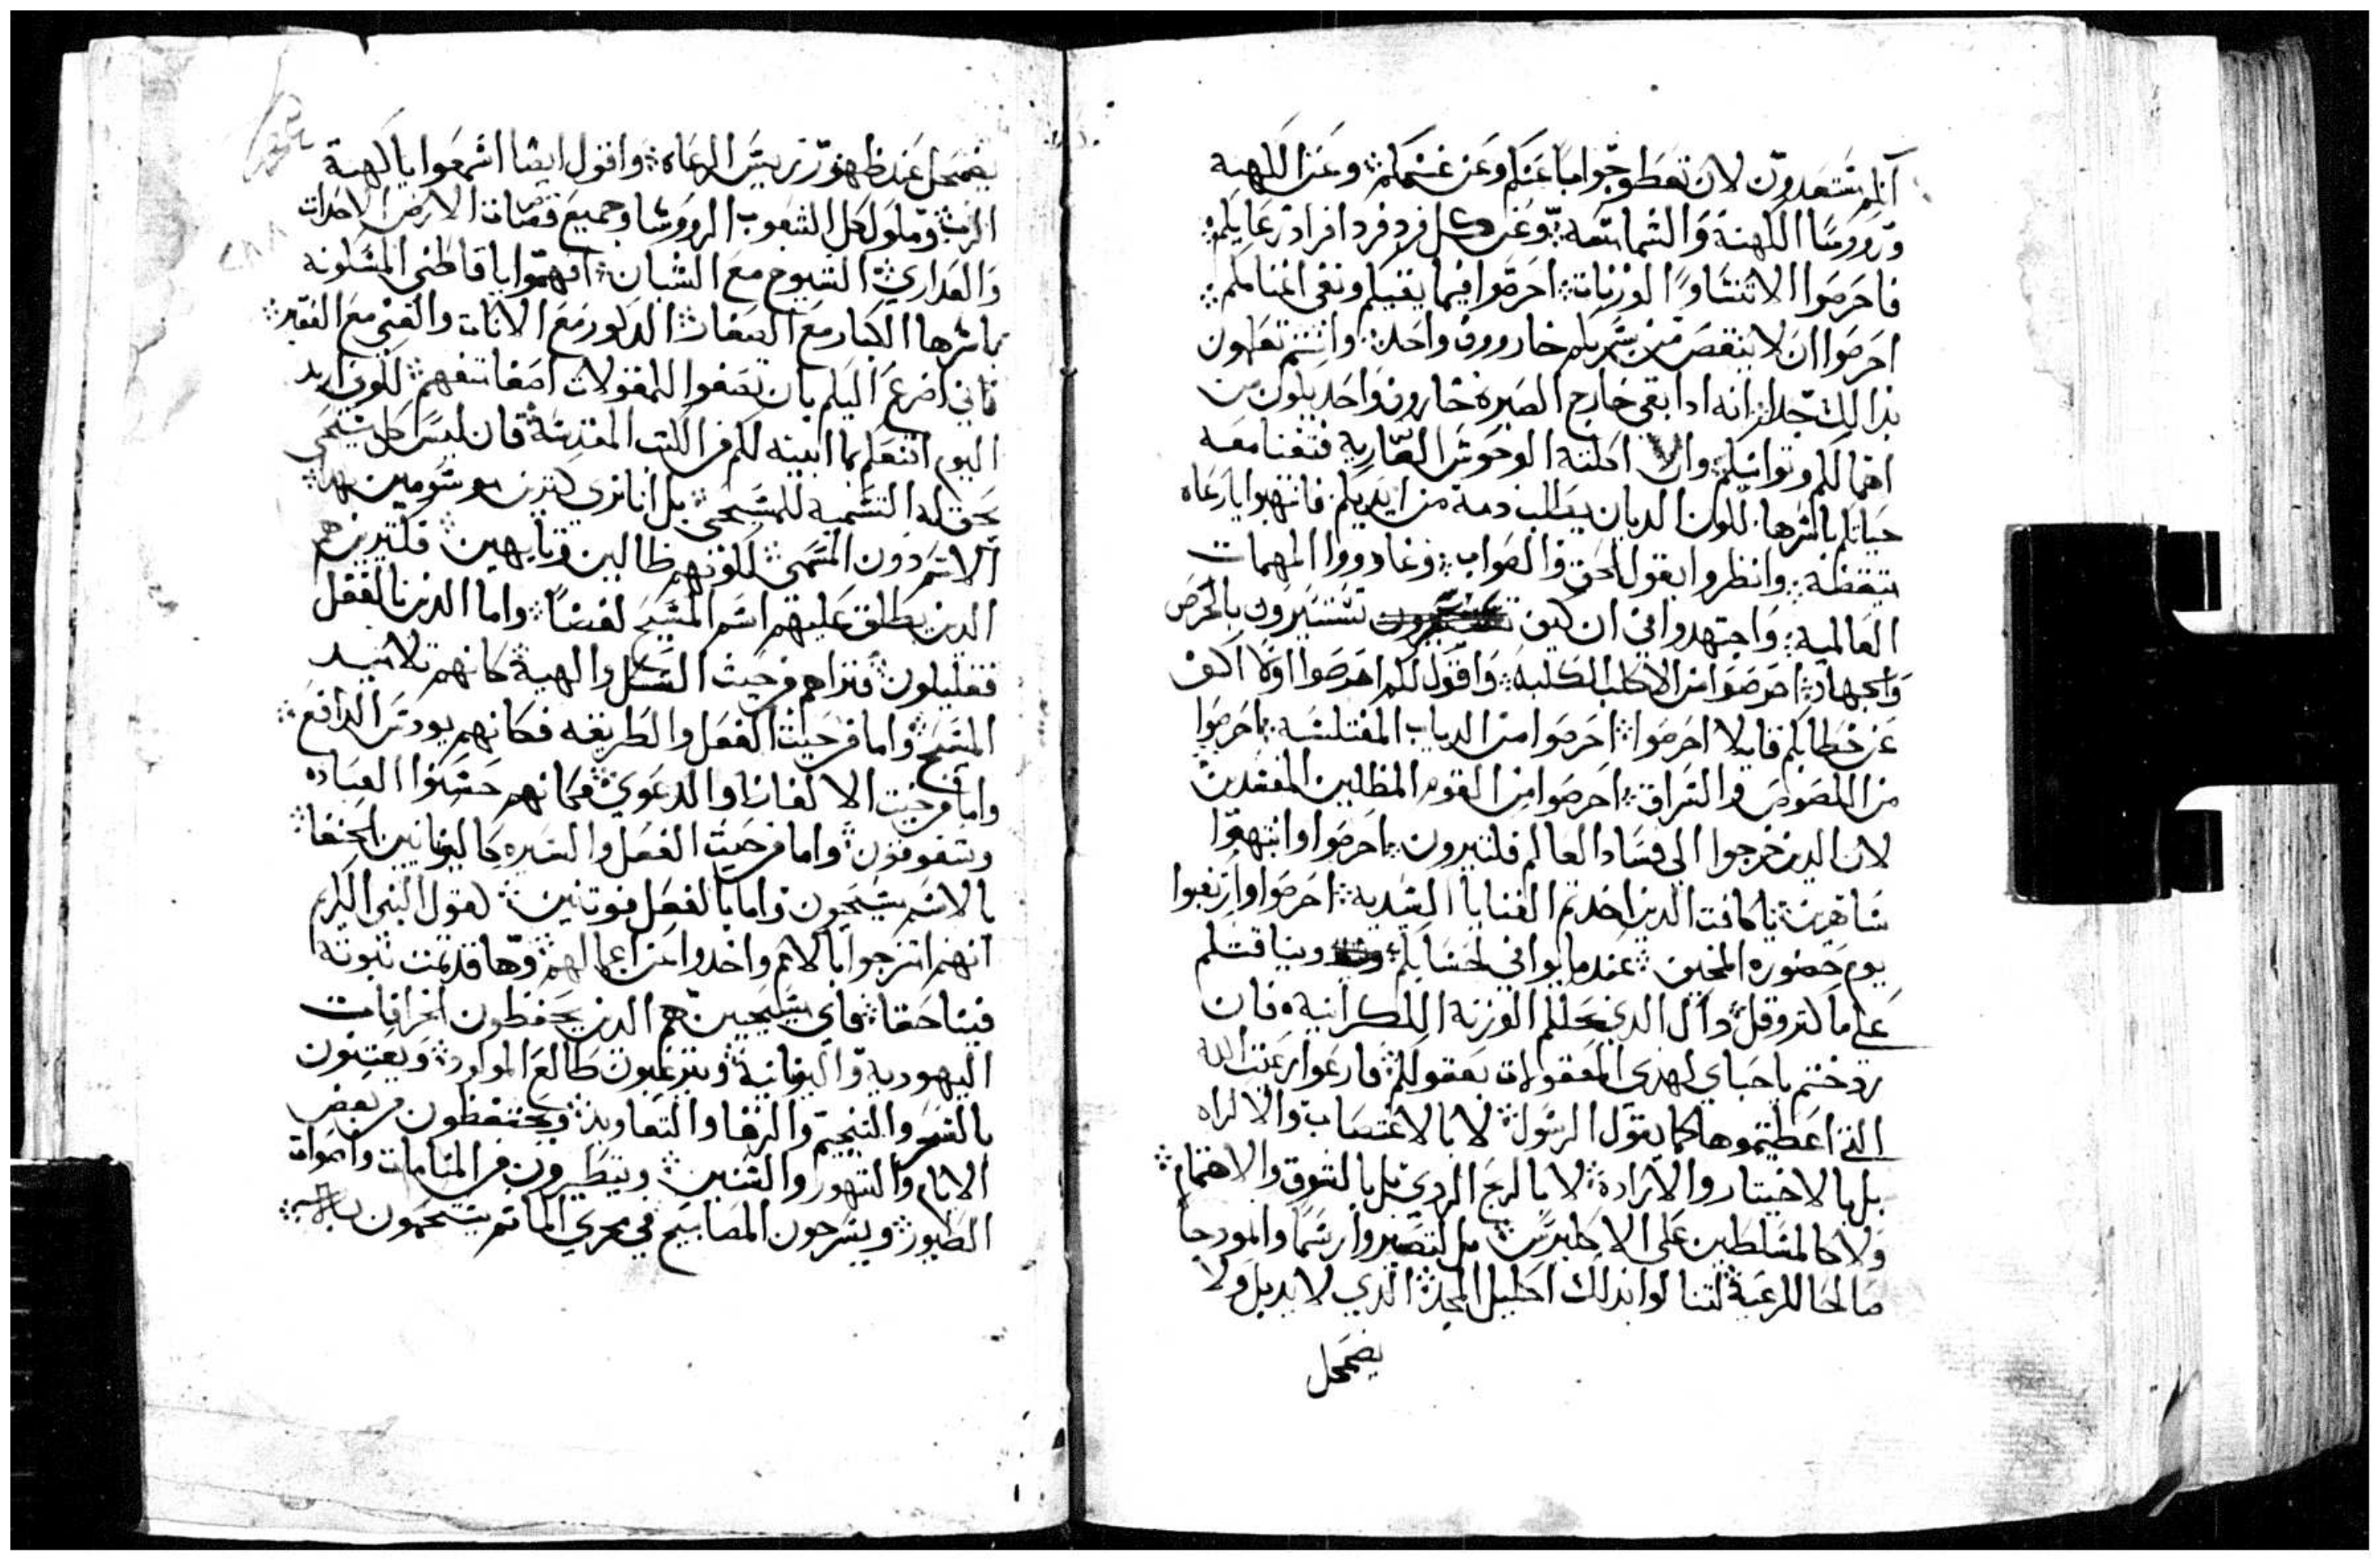 انكم ستعدون لان تعطو جوابا عنكم وعن غنمكم وعن الكهنه
وروسا الكهنة والشمامسه وعن كل فرد فرد افراد رعايكم
فاحرصوا الا تنشاو الوزنات احرصوا فيما يقيكم ونقى اغنامكم
احرصوا ان لا ينقص من شركم خاروف واحد وانتم تعلمون
بذالك جدا انه اذا بقى خارج الصيره خاروف واحد يكون من
اهمالكم وتوانيكم والا اكلته الوحوش الضاريه فتفنا معه
حياتكم باشرها لكون الديان يطلب دمه من ايديكم فانتهوا يا رعاه
بيقظة وانظروا بقول الحق والصواب وغادروا المهمات
العالمية واجتهدوا في ان كيف تستسيرون بالحرص
والجهاد احرصوا من الاكلب الكلبه واقول لكم احرصوا اولا اكف
عن خطابكم قايلا احرصوا احرصوا من الدياب المفتلسه احرصوا
من اللصوص والسراق احرصوا من القوم المظلين المفسدين
لان الدين خرجوا الى فساد العالم فكتيرون احرصوا وانتبهوا
ساهرين يا كافت الدين اخدتم القنايا السيديه احرصوا وارتعبوا
يوم حضوره المخيف عندما يوافي لحسابكم ويناقشكم
على ما كتر وقل دال الدي نحلكم الوزنه الملكرانيه فان
روختم يا حباي لهدي المعقولات بعقولكم فارعوا رعيت الله
التي اعطيتموها كما يقول الرسول لا بالاغتصاب والاكراه
بل بالاختيار والارادة لا بالربح الردي بل بالشوق والاهتمام
ولا كالمتسلطين على الاكليرس بل لتصيروا رسما وانمودجا
صالحا للرعية لتنالوا بذلك اكليل المجد الدي لا يدبل ولا
يضمحل
يضمحل عند ظهور ريس الرعاه واقول ايضا اسمعوا يا كهنة
الرب وملوك كل الشعوب الروسا وجميع قضات الارض الاحدات
والعداري الشيوخ مع الشبان افهموا يا قاطني المسكونه
باسرها الكبار مع الصغار الدكور مع الانات والغني مع الفقير
فاني اضرع اليكم بان تصغوا للمقولات اصغا بتفهم لكوني اريد
اليوم انتعلم بما ابينه لكم من الكتب المقدسة فان ليس كل مسيحي
يحق له التسميه للمسيحي بل انا نرى كتيرين موسومين بهدا
الاسم دون المسمى لكونهم ظالين وتايهين فكتيرين هم
الدين يطلق عليهم اسم المسيح لفضا واما الدين بالفعل
فقليلون فنراهم من حيت الشكل والهية كانهم تلاميد
المسيح واما من حيت الفعل والطريقه فكانهم يودس الدافع
واما من حيت الالفاظ والدعوي فكانهم حسنوا العباده
ويتفوقون واما من حيت الفعل والسيره كاليونانين الحنفا
بالاسم مسيحيون واما بالفعل فوتنيين كقول النبي الكريم
انهم امتزجوا بالامم واخدوا من اعمالهم وها قد تمت نبوته
فينا حقا فاي مسيحيين هم الدين يحفظون خرافات
اليهوديه واليونانية ويتزعمون طالع الموارد ويعتنون
بالسحر والتنجيم والرقا والتعاويد ويحتفظون من بعض
الايام والشهور والسنين ويتطيرون من المنامات واصوات
الطيور ويسرحون المصابيح في مجري الما تم يستحمون به